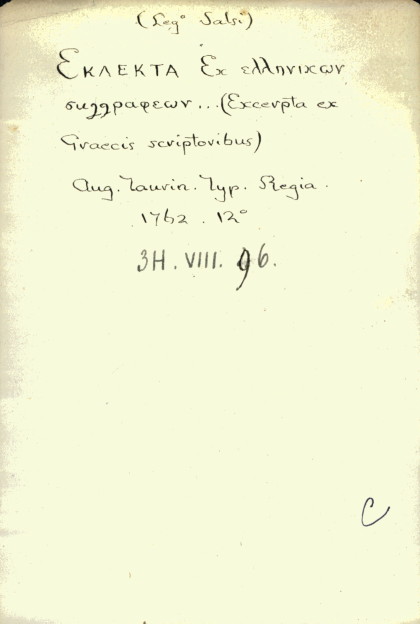 (Legº Salsi)
Εκλεκτα Εχ ελληνιχων
συγγραφεων...(Excerpta ex
Graecis scriptoribus)
Aug. Taurin. Typ. Regia.
1762. 12º
3H. VIII. 96.
C